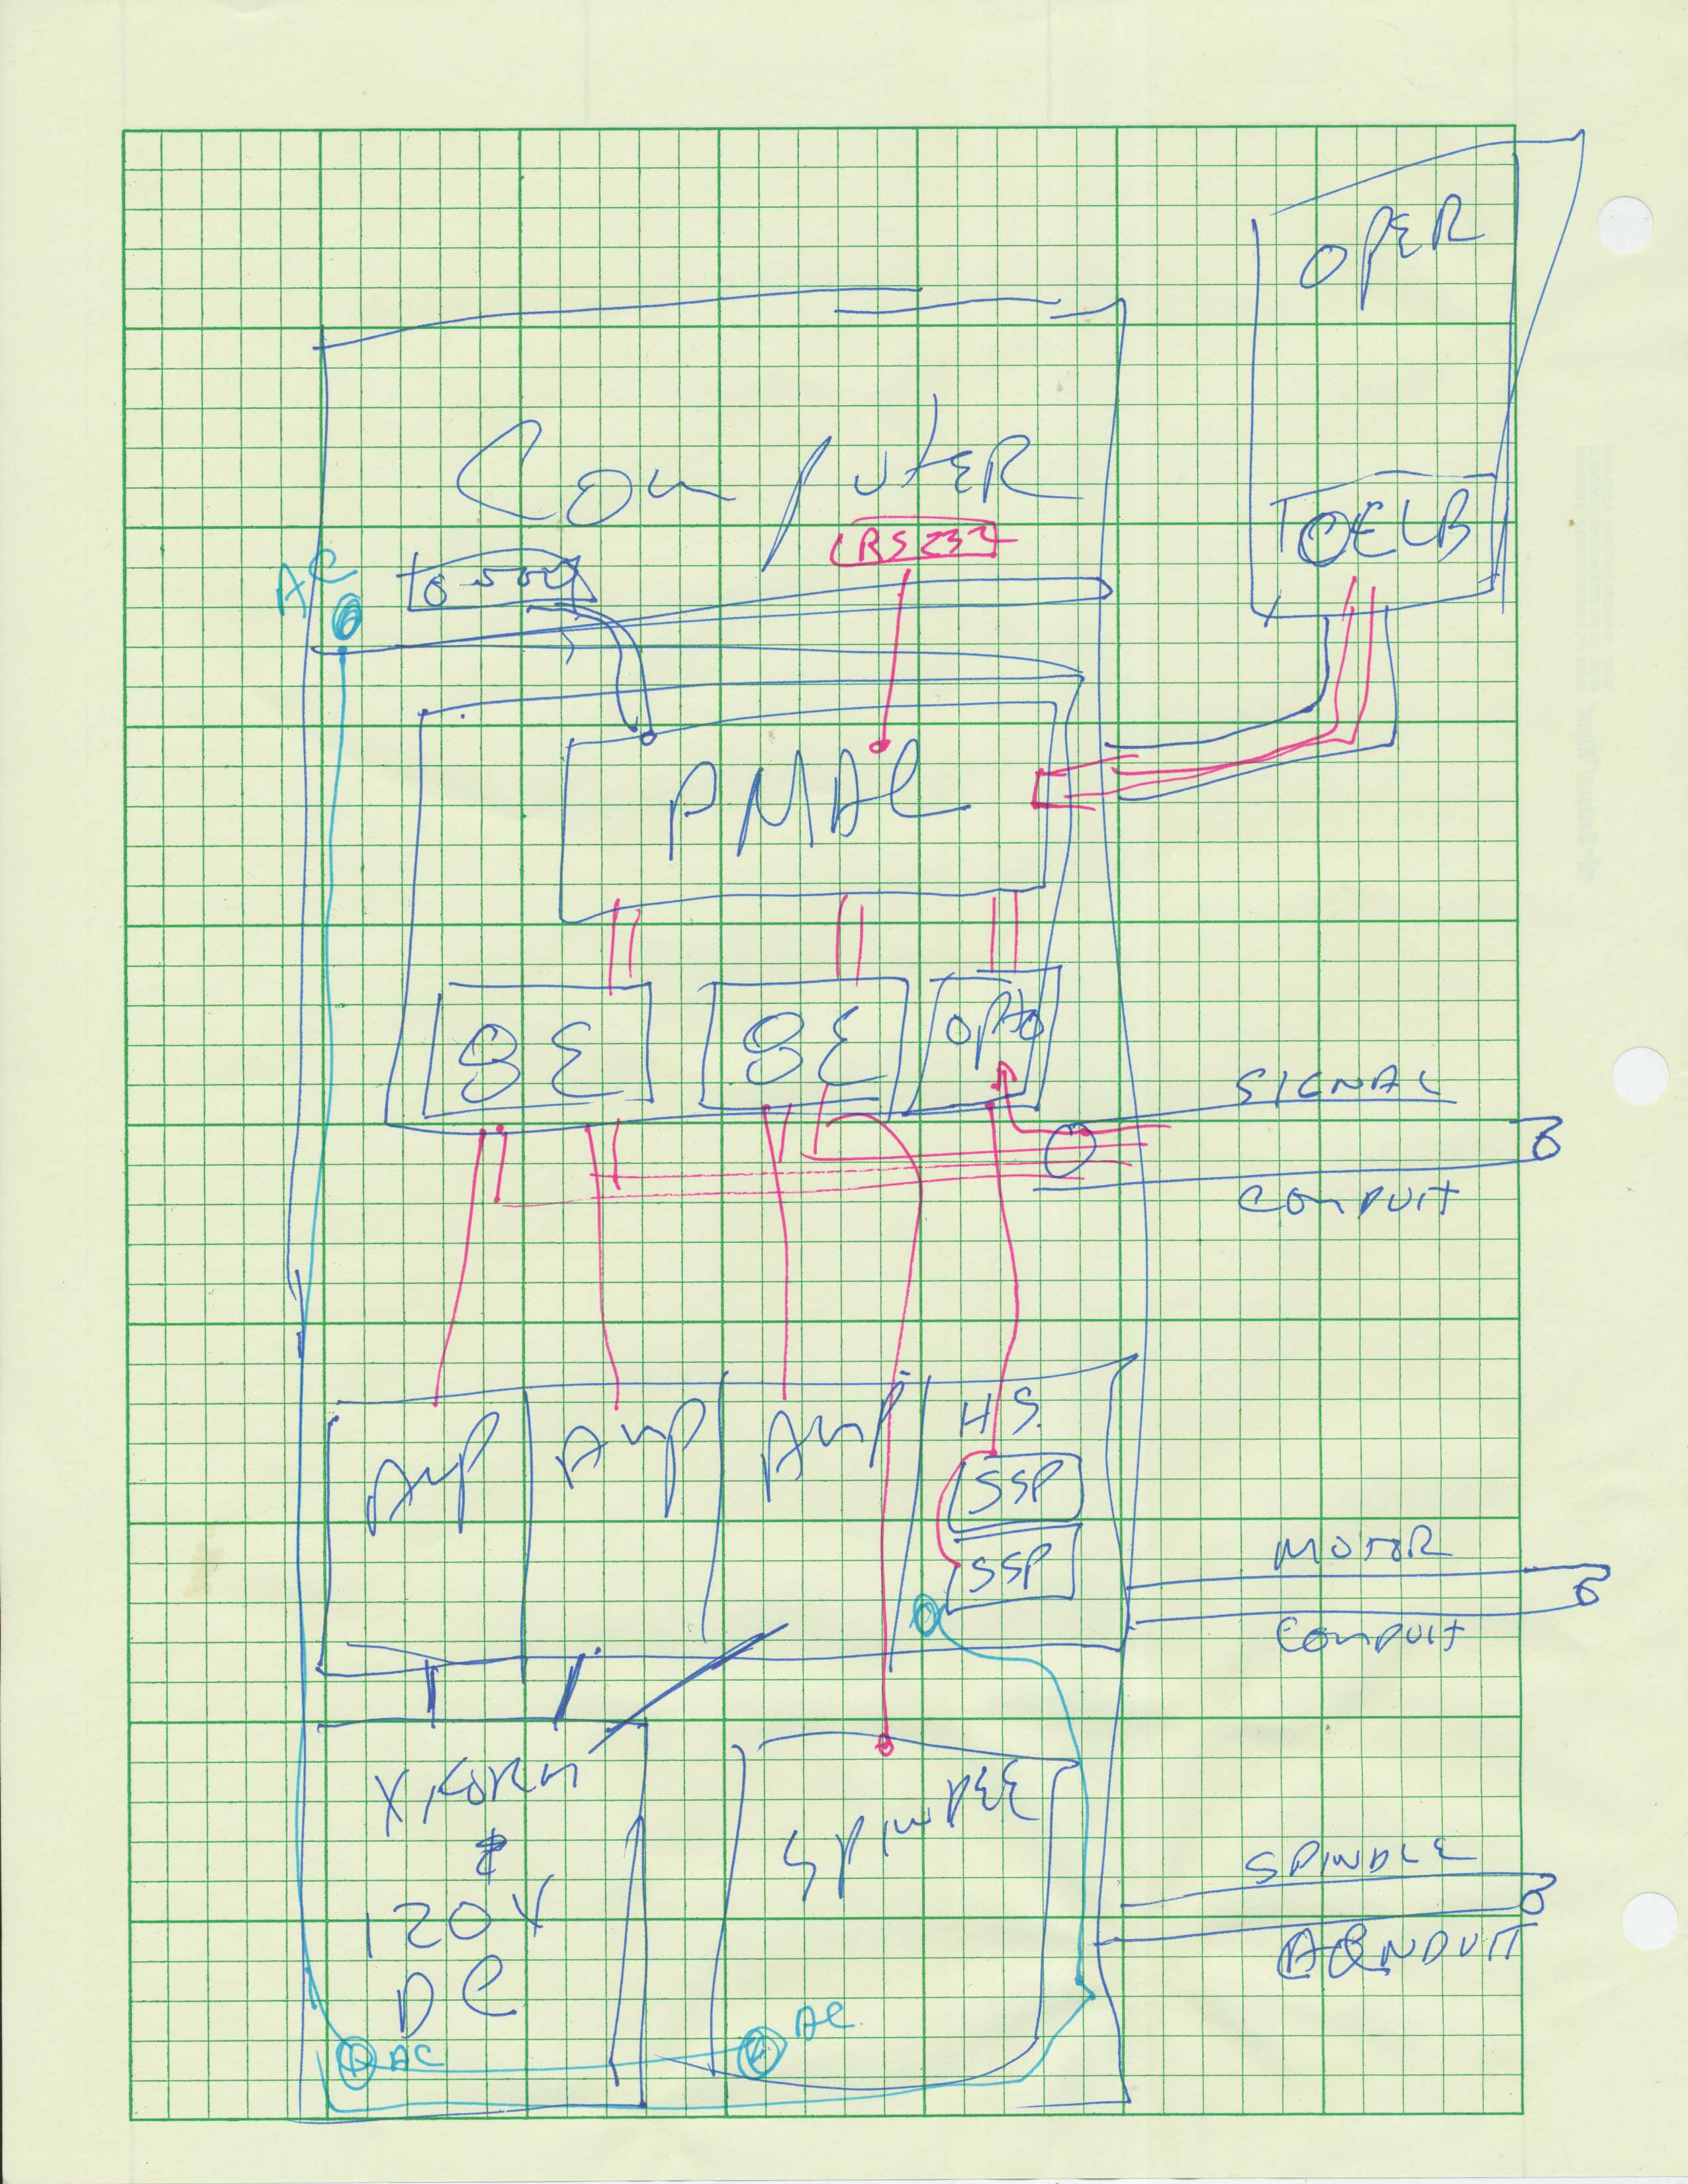 OPER
COMPUTER
RS232
AC
PMAC
8E
8E
OPTO
SIGNAL
CONDUIT
AMP
AMP
AMP
H.S.
SSP
SSP
MOTOR
CONDUIT
XFORM
120V
DC
SPINDLE
SPINDLE
CONDUIT
AC
AC